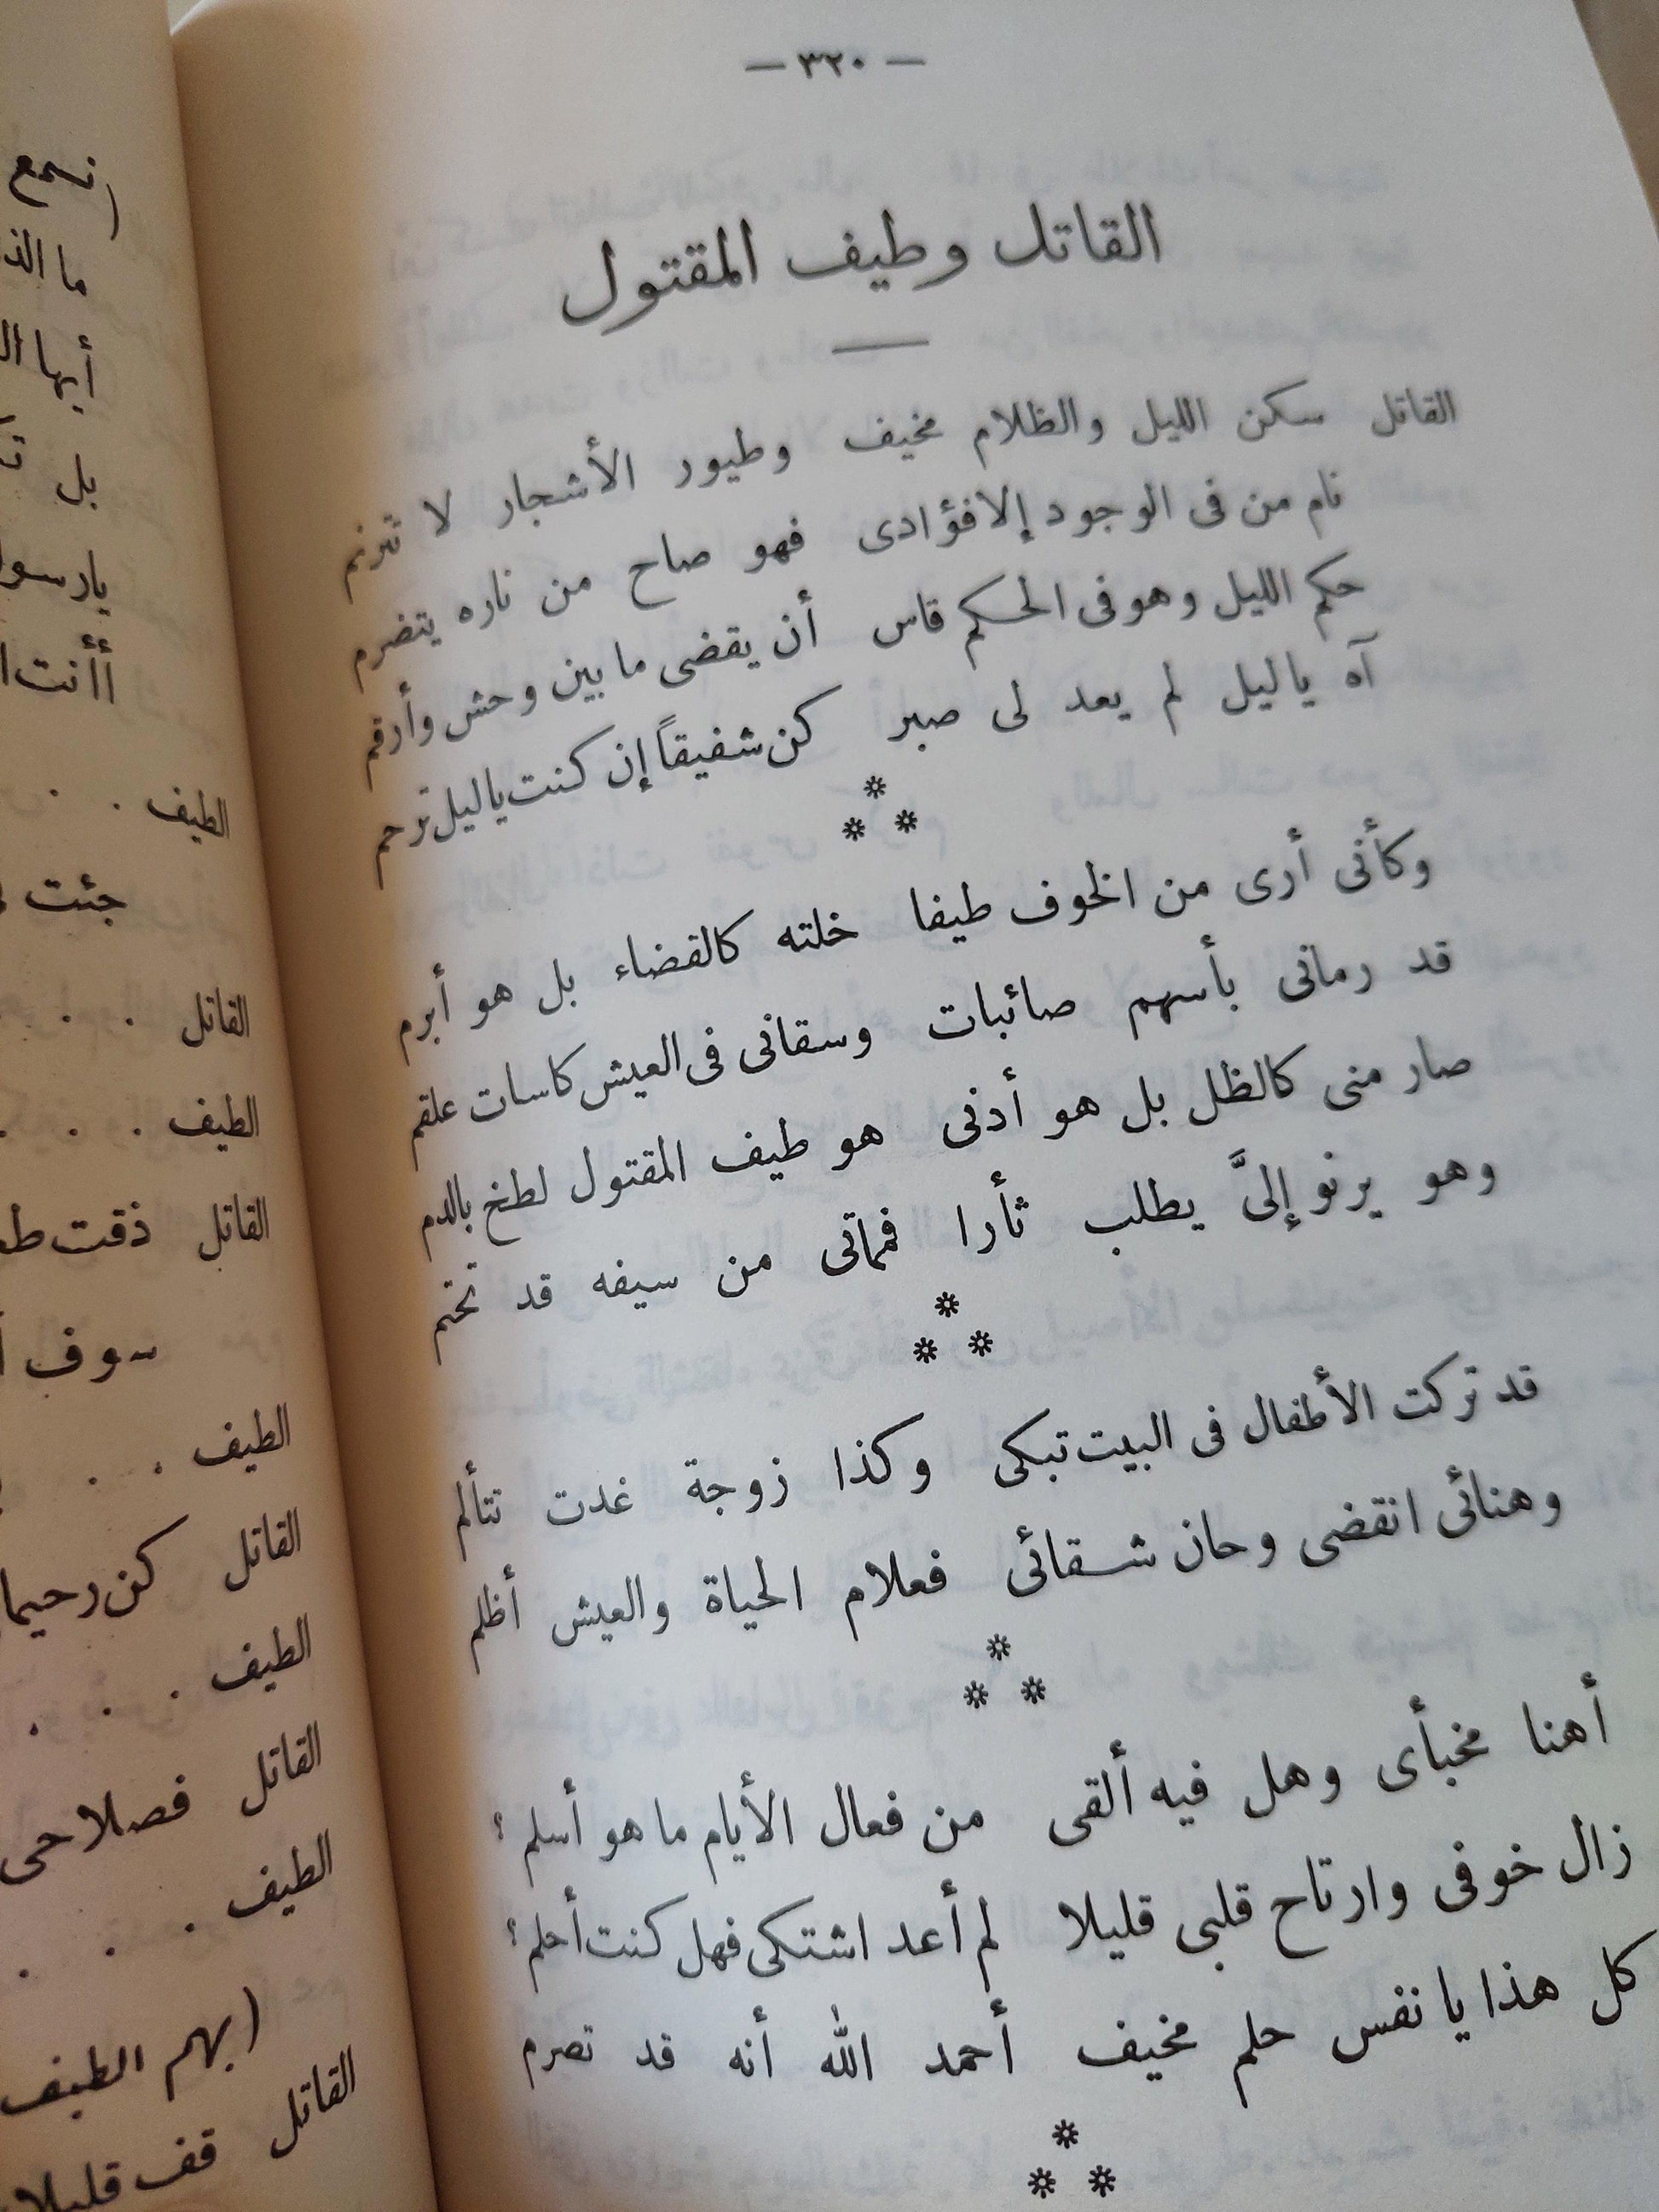 — ٣٢٠ —
القاتل وطيف المقتول
القاتل سكن الليل والظلام مخيف وطيور الأشجار لا تترنم
نام من فى الوجود إلا فؤادى فهو صاح من ناره يتضرم
حكم الليل وهو فى الحكم قاس أن يقضى ما بين وحش وأرقم
آه ياليل لم يعد لى صبر كن شفيقاً إن كنت ياليل ترحم
* * *
وكأنى أرى من الخوف طيفا خلته كالقضاء بل هو أبرم
قد رمانى بأسهم صائبات وسقانى فى العيش كاسات علقم
صار منى كالظل بل هو أدنى هو طيف المقتول لطخ بالدم
وهو يرنو إلىَّ يطلب ثأرا فماتى من سيفه قد تختم
* * *
قد تركت الأطفال فى البيت تبكى وكذا زوجة غدت تتألم
وهنائى انقضى وحان شقائى فعلام الحياة والعيش أظلم
* * *
أهنا مخبأى وهل فيه ألقى من فعال الأيام ما هو أسلم ؟
زال خوفى وارتاح قلبى قليلا لم أعد اشتكى فهل كنت أحلم ؟
كل هذا يا نفس حلم مخيف أحمد الله أنه قد تصرم
* * *
(نسمع
ما
بل
أأنت
الطيف . .
جئت
القاتل . .
الطيف . . .
القاتل ذقت
سوف
الطيف . .
القاتل كن رحيما
الطيف . . .
القاتل فصلاحى
الطيف . . .
(يهم الطيف
القاتل قف قليلا